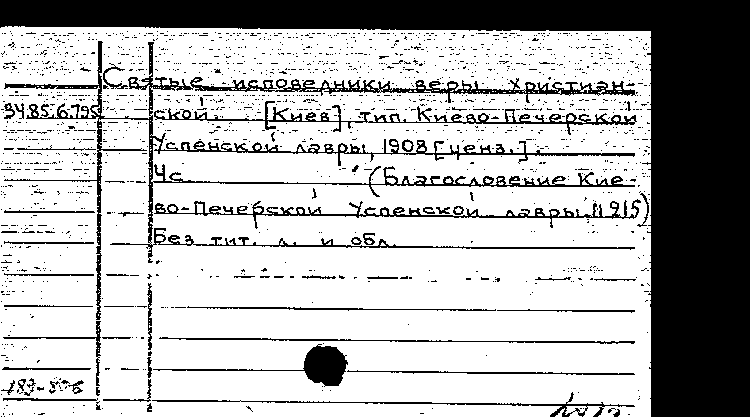 Святые исповедники веры христиан-
34.85.6.795 ской. [Киев], тип. Киево-Печерской
Успенской лавры, 1908 [ценз.].
4с. (Благословение Кие-
во-Печерской Успенской лавры. № 215)
Без тит. л. и обл.